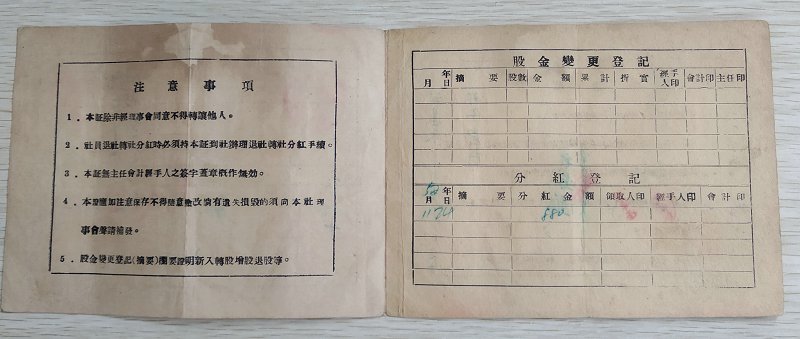 注意事項
1．本証除非經理事會同意不得轉讓他人。
2．社員退社轉社分紅時必須持本証到社辦理退社轉社分紅手續。
3．本証無主任會計經手人之簽字蓋章概作無効。
4．本證應加注意保存不得隨意塗改倘有遺失損毀的須向本社理
事會聲請補發。
5．股金變更登記(摘要)欄要證明新入轉股增股退股等。
股金變更登記
年 月 日 摘要 股數 金額 累計 折實 經手人印 會計印 主任印
分紅登記
年 月 日 摘要 分紅金額 領取人印 經手人印 會計印
880